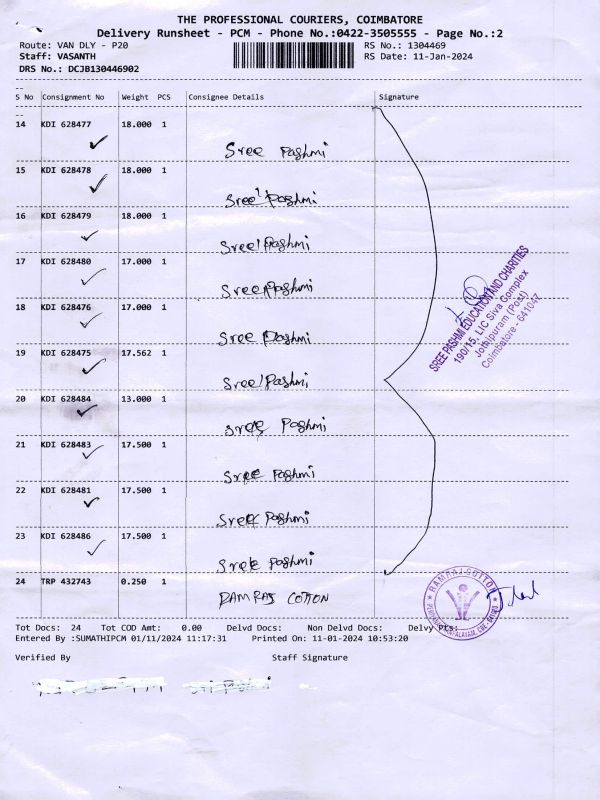 THE PROFESSIONAL COURIERS, COIMBATORE
Delivery Runsheet - PCM - Phone No.:0422-3505555 - Page No.:2
Route: VAN DLY - P20 RS No.: 1304469
Staff: VASANTH RS Date: 11-Jan-2024
DRS No.: DCJB130446902
S No Consignment No Weight PCS Consignee Details Signature
14 KDI 628477 18.000 1
Sree Pashmi
15 KDI 628478 18.000 1
Sree Pashmi
16 KDI 628479 18.000 1
Sree Pashmi
17 KDI 628480 17.000 1
Sree Pashmi
18 KDI 628476 17.000 1
Sree Pashmi
19 KDI 628475 17.562 1
Sree Pashmi
20 KDI 628484 13.000 1
Sree Pashmi
21 KDI 628483 17.500 1
Sree Pashmi
22 KDI 628481 17.500 1
Sree Pashmi
23 KDI 628486 17.500 1
Sree Pashmi
24 TRP 432743 0.250 1
RAMRAJ COTTON
SREE PASHMI EDUCATION AND CHARITIES
190/15, LIC Siva Complex
Jothipuram (Post)
Coimbatore - 641047
RAMRAJ COTTON
Tot Docs: 24 Tot COD Amt: 0.00 Delvd Docs: Non Delvd Docs: Delvy Pts:
Entered By :SUMATHIPCM 01/11/2024 11:17:31 Printed On: 11-01-2024 10:53:20
Verified By Staff Signature